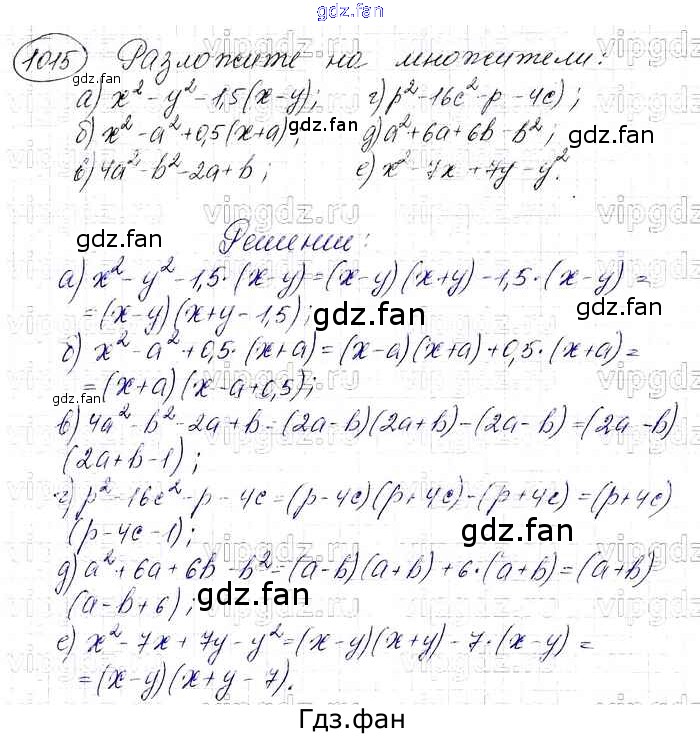 gdz.fan
1015 Разложите на множители:
а) x² - y² - 1,5(x-y); г) p² - 16c² - p - 4c);
б) x² - a² + 0,5(x+a); д) a² + 6a + 6b - b²;
в) 4a² - b² - 2a + b; е) x² - 7x + 7y - y².
Решение:
а) x² - y² - 1,5·(x-y) = (x-y)(x+y) - 1,5·(x-y) =
= (x-y)(x+y-1,5);
б) x² - a² + 0,5·(x+a) = (x-a)(x+a) + 0,5·(x+a) =
= (x+a)(x-a+0,5);
в) 4a² - b² - 2a + b = (2a-b)(2a+b) - (2a-b) = (2a-b)
(2a+b-1);
г) p² - 16c² - p - 4c = (p-4c)(p+4c) - (p+4c) = (p+4c)
(p-4c-1);
д) a² + 6a + 6b - b² = (a-b)(a+b) + 6·(a+b) = (a+b)
(a-b+6);
е) x² - 7x + 7y - y² = (x-y)(x+y) - 7·(x-y) =
= (x-y)(x+y-7).
Гдз.фан